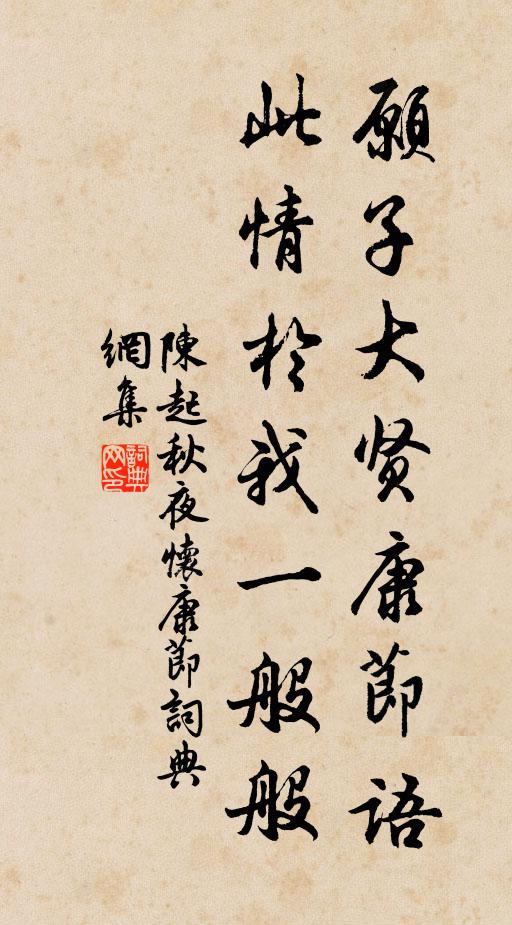 願子大贤康節語
此情於我一般般
陳起秋夜懷康節詞典
網集
詞典網印